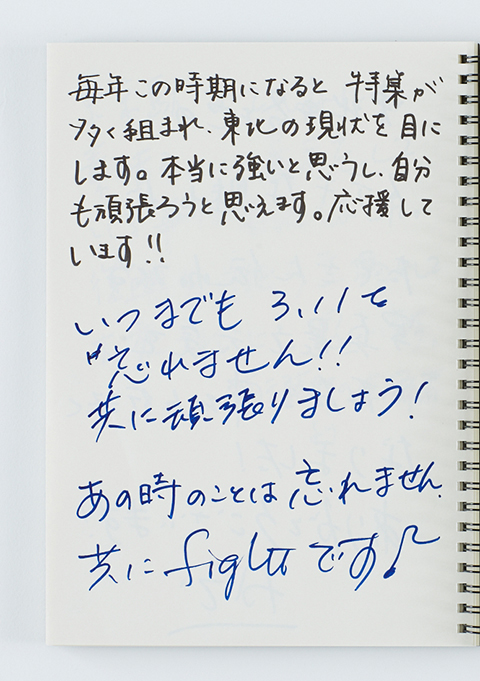 毎年この時期になると 特集が
多く組まれ、東北の現状を目に
します。本当に強いと思うし、自分
も頑張ろうと思えます。応援して
います!!
いつまでも 3.11を
忘れません!!
共に頑張りましょう!
あの時のことは忘れません.
共にfightです♪